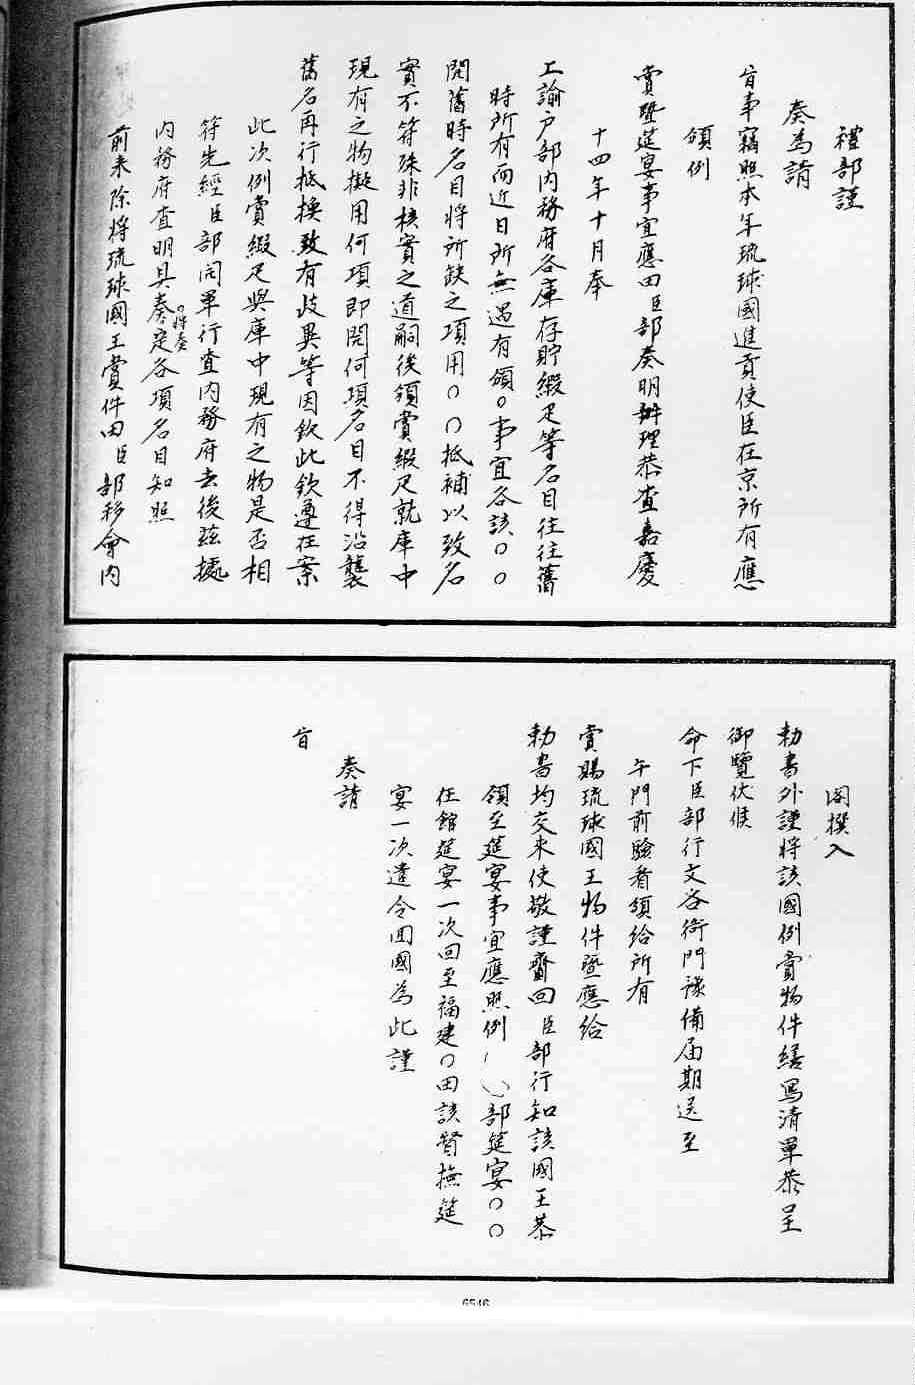 禮部謹
奏為請
旨事竊照本年琉球國進貢使臣在京所有應
頒例
賞暨筵宴事宜應由臣部奏明辦理恭查嘉慶
十四年十月奉
上諭戶部內務府各庫存貯緞疋等名目往往舊
時所有而近日所無遇有頒〇事宜各該〇〇
開舊時名目將所缺之項用〇〇抵補以致名
實不符殊非核實之道嗣後頒賞緞疋就庫中
現有之物擬用何項即開何項名目不得沿襲
舊名再行抵換致有歧異等因欽此欽遵在案
此次例賞緞疋與庫中現有之物是否相
符先經臣部開單行查內務府去後茲據
內務府查明具奏定各項名目知照
〇將奏
前來除將琉球國王賞件由臣部移會內
閣撰入
勅書外謹將該國例賞物件繕寫清單恭呈
御覽伏候
命下臣部行文各衙門豫備屆期送至
午門前驗看頒給所有
賞賜琉球國王物件暨應給
勅書均交來使敬謹齎回臣部行知該國王恭
領至筵宴事宜應照例部筵宴〇〇
在館筵宴一次回至福建〇由該督撫筵
宴一次遣令回國為此謹
奏請
旨